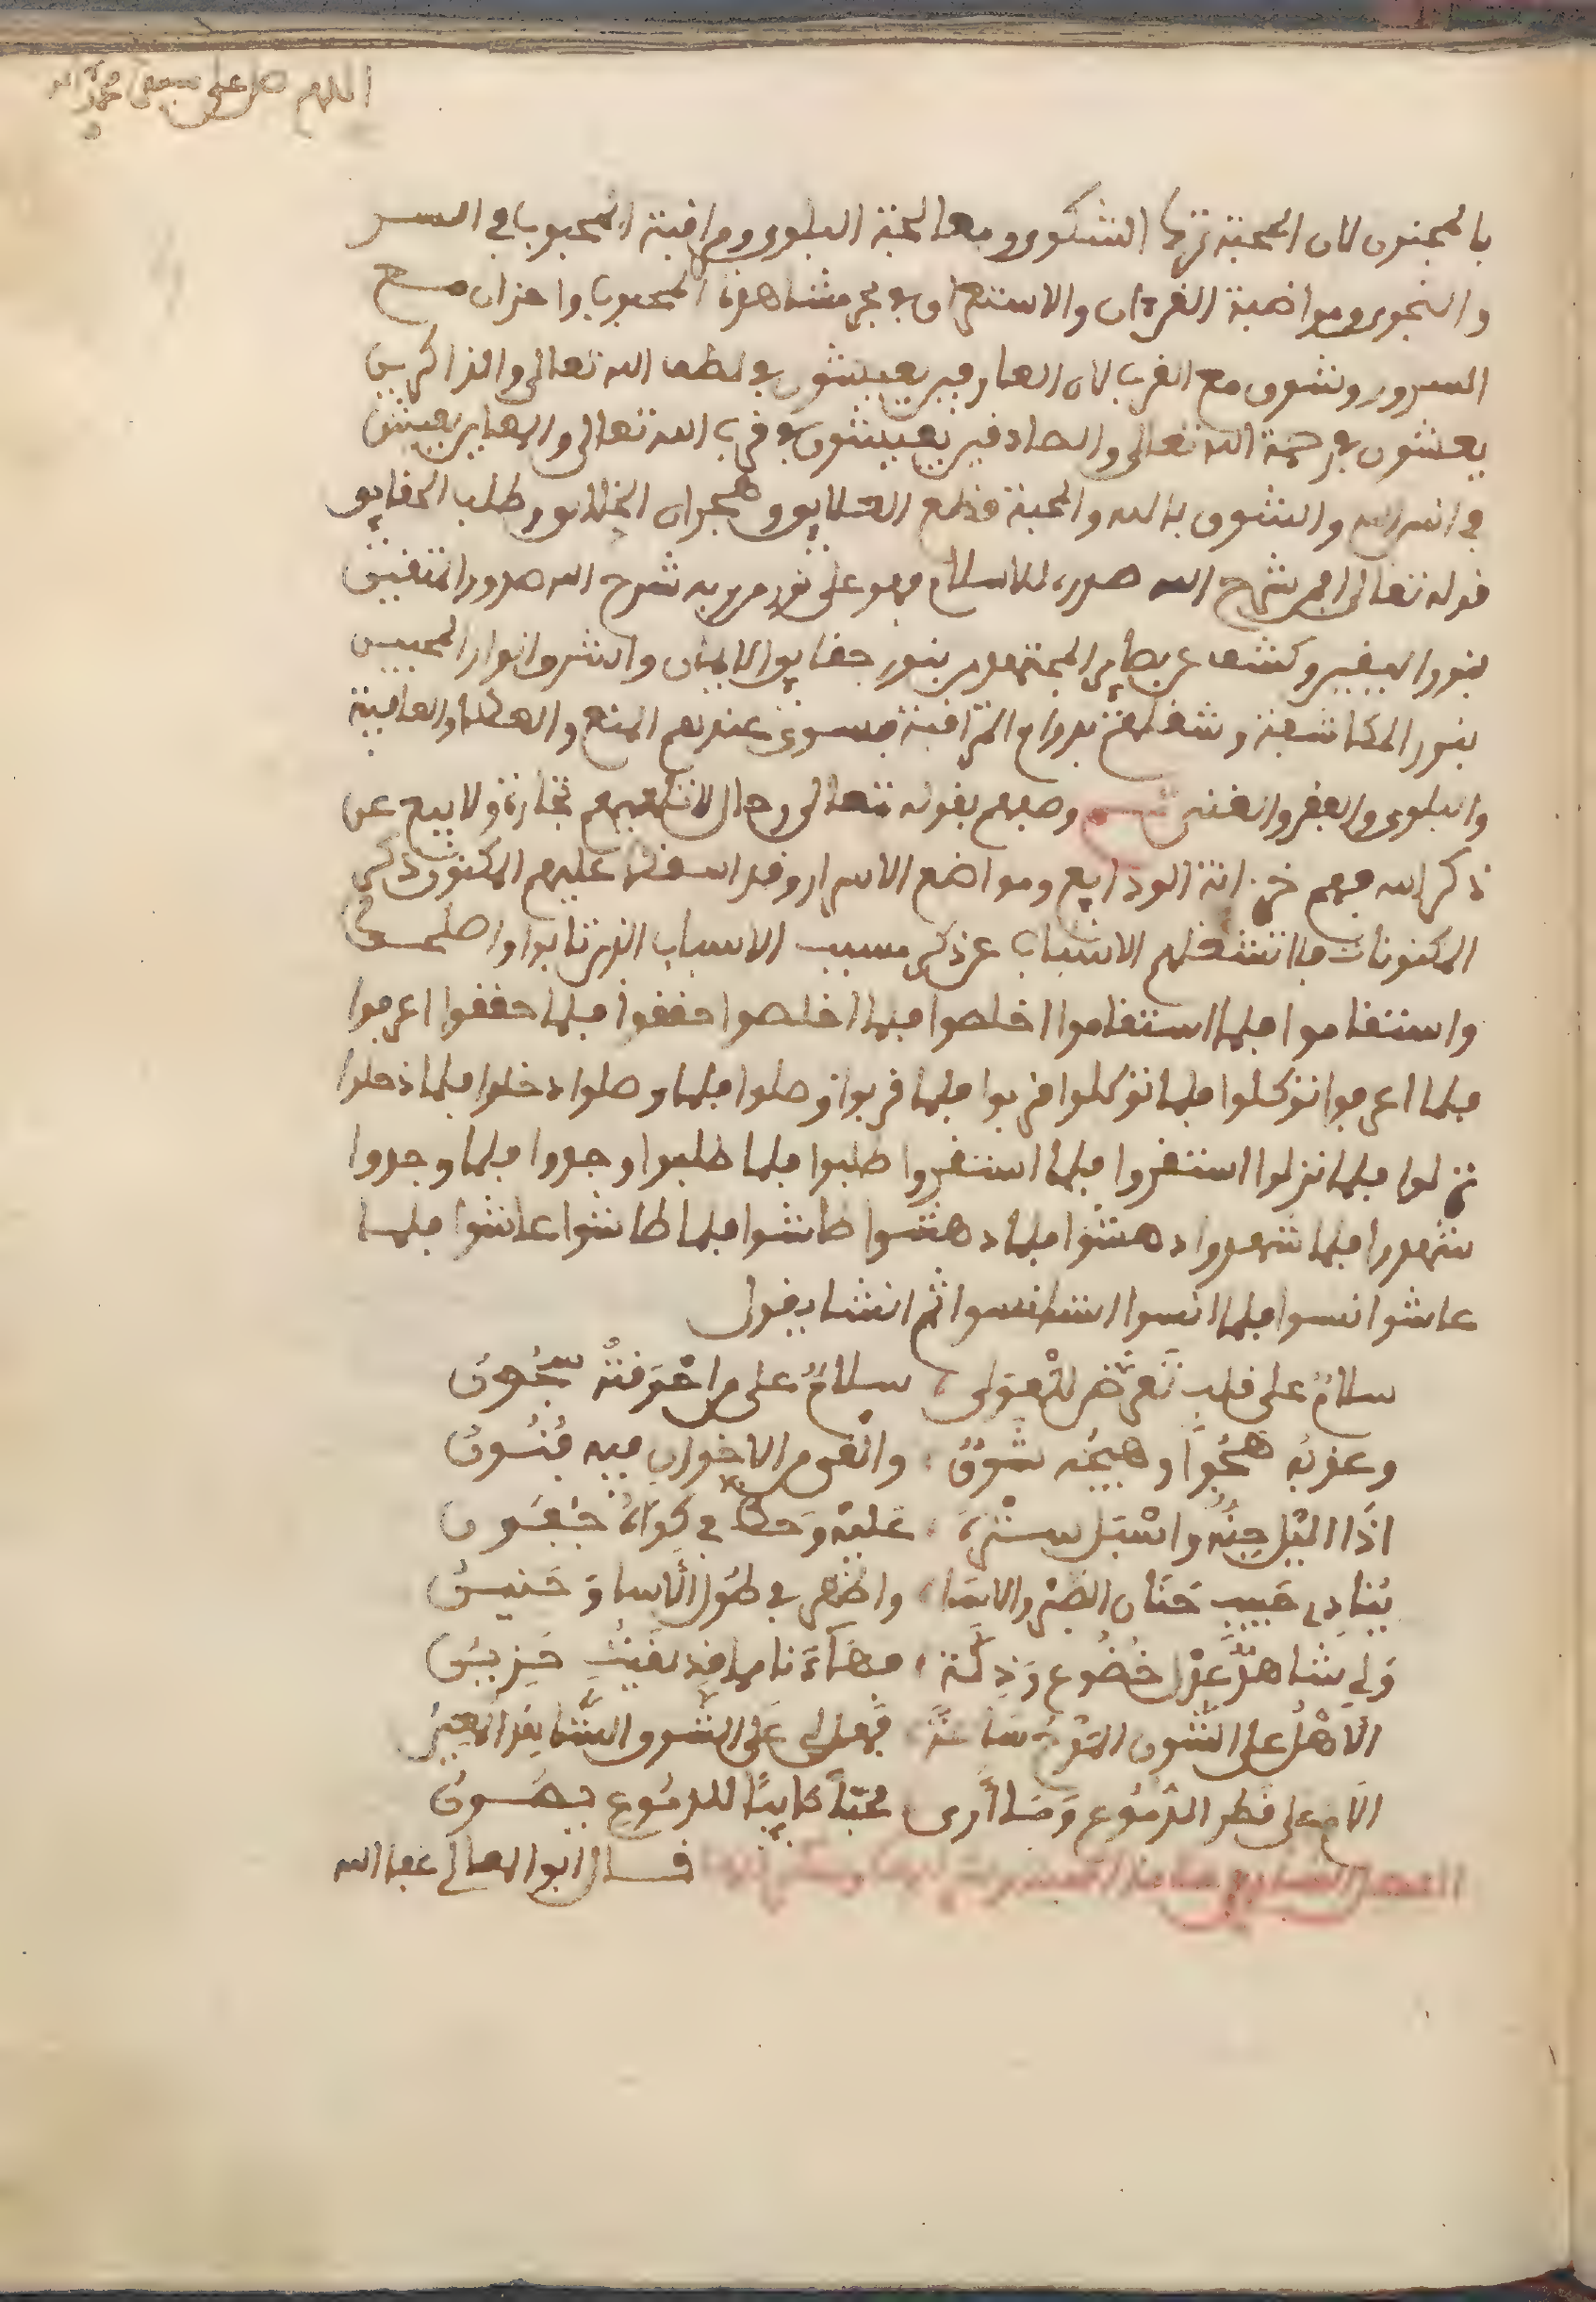 اللهم صل على سيدنا محمد
بالمجنون لان المحبة ترك الشكوى ومعالجة البلوى ومراقبة المحبوب في السر
والنجوى ومواضبة القرءان والاستغراق في بحر مشاهدة المحبوب واحزان مع
السرور وشوق مع القرب لان العارفين يعيشون في لطف الله تعالى والذاكرين
يعشون في رحمة الله تعالى والصادفين يعيشون في قرب الله تعالى والصابر يعيش
في انس الله والشوق بالله والمحبة قطع العلايق وهجران الخلايق وطلب الحقايق
قوله تعالى افمن شرح الله صدره للاسلام فهو على نور من ربه شرح الله صدور المتقين
بنور اليقين وكشف عن بصاير المجتهدين بنور حقايق الايمان واشرق انوار المحبين
بنور المكاشفة وشغلهم بدوام المراقبة فسوى عندهم المنع والعطا والعافية
والبلوى والفقر والغنى وصفهم بقوله تعالى رجال لا تلهيهم تجارة ولا بيع عن
ذكر الله فهم خزانة الودايع ومواضع الاسرار وقد اسقط عليهم المكنون ذكر
المكنونات فما اشغلهم الاسباب عن ذكر مسبب الاسباب الذين تابوا واصلحوا
واستقاموا فلما استقاموا اخلصوا فلما اخلصوا حققوا فلما حققوا اعرفوا
فلما اعرفوا توكلوا فلما توكلوا قربوا فلما قربوا وصلوا فلما وصلوا دخلوا فلما دخلوا
نزلوا فلما نزلوا استقروا فلما استقروا طلبوا فلما طلبوا وجدوا فلما وجدوا
شهدوا فلما شهدوا دهشوا فلما دهشوا طاشوا فلما طاشوا عاشوا فلما
عاشوا انسوا فلما انسوا استانسوا ثم انشا يقول
سلام على قلب تعرض للهوى سلام على من احرقته شجون
وعذبه هجرا وهيجه شوق والقوم الاخوان فيه فنون
اذا اليل جنه واسبل ستره عليه وحط في كراه جفون
ينادي حبيب حنان الضر والاسا واظهر في طول الاسا وحنين
ولي شاهد عدل خضوع وذلة فهاءنا يا قد بقيت حزين
الا هل على الشوق المبرح ساعة فهل لي على الشوق الشديد معين
الا فعلى قطر الدموع وما ارى محبا كايبا للدموع يصون
قال ابو المعالي عفا الله